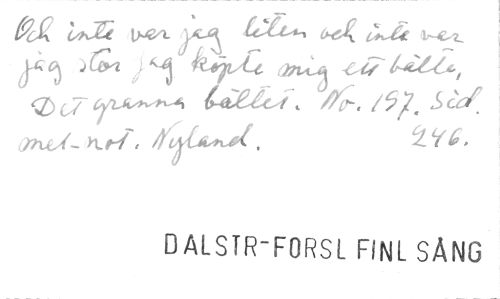 Och inte var jag liten och inte var
jag stor jag köpte mig ett bälte,
Det granna bältet. No. 157. Sid.
mel-not. Nyland. 246.
DALSTR-FORSL FINL SÅNG